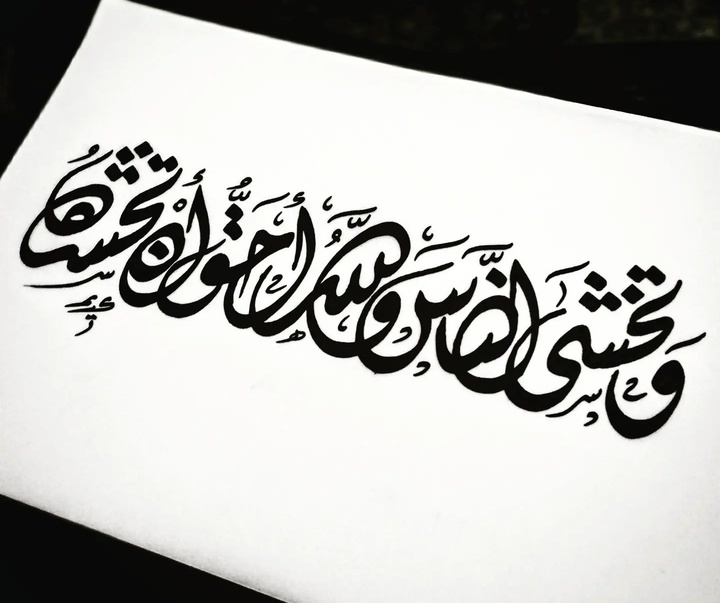 وَتَخْشَى النَّاسَ وَاللَّهُ أَحَقُّ أَنْ تَخْشَاهُ